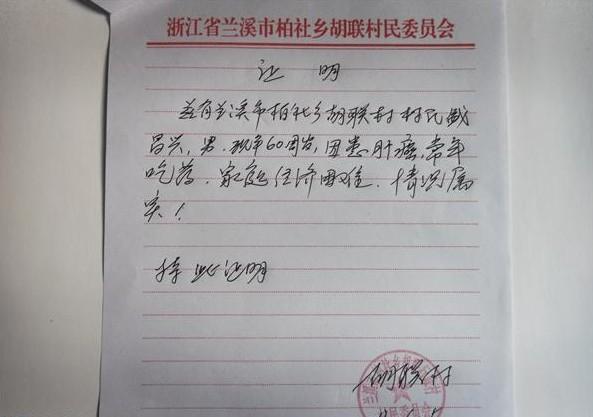 浙江省兰溪市柏社乡胡联村民委员会
证 明
兹有兰溪市柏社乡胡联村村民戴
昌兴，男，现年60周岁，因患肝癌，常年
吃药，家庭经济困难，情况属
实！
特此证明
胡联村